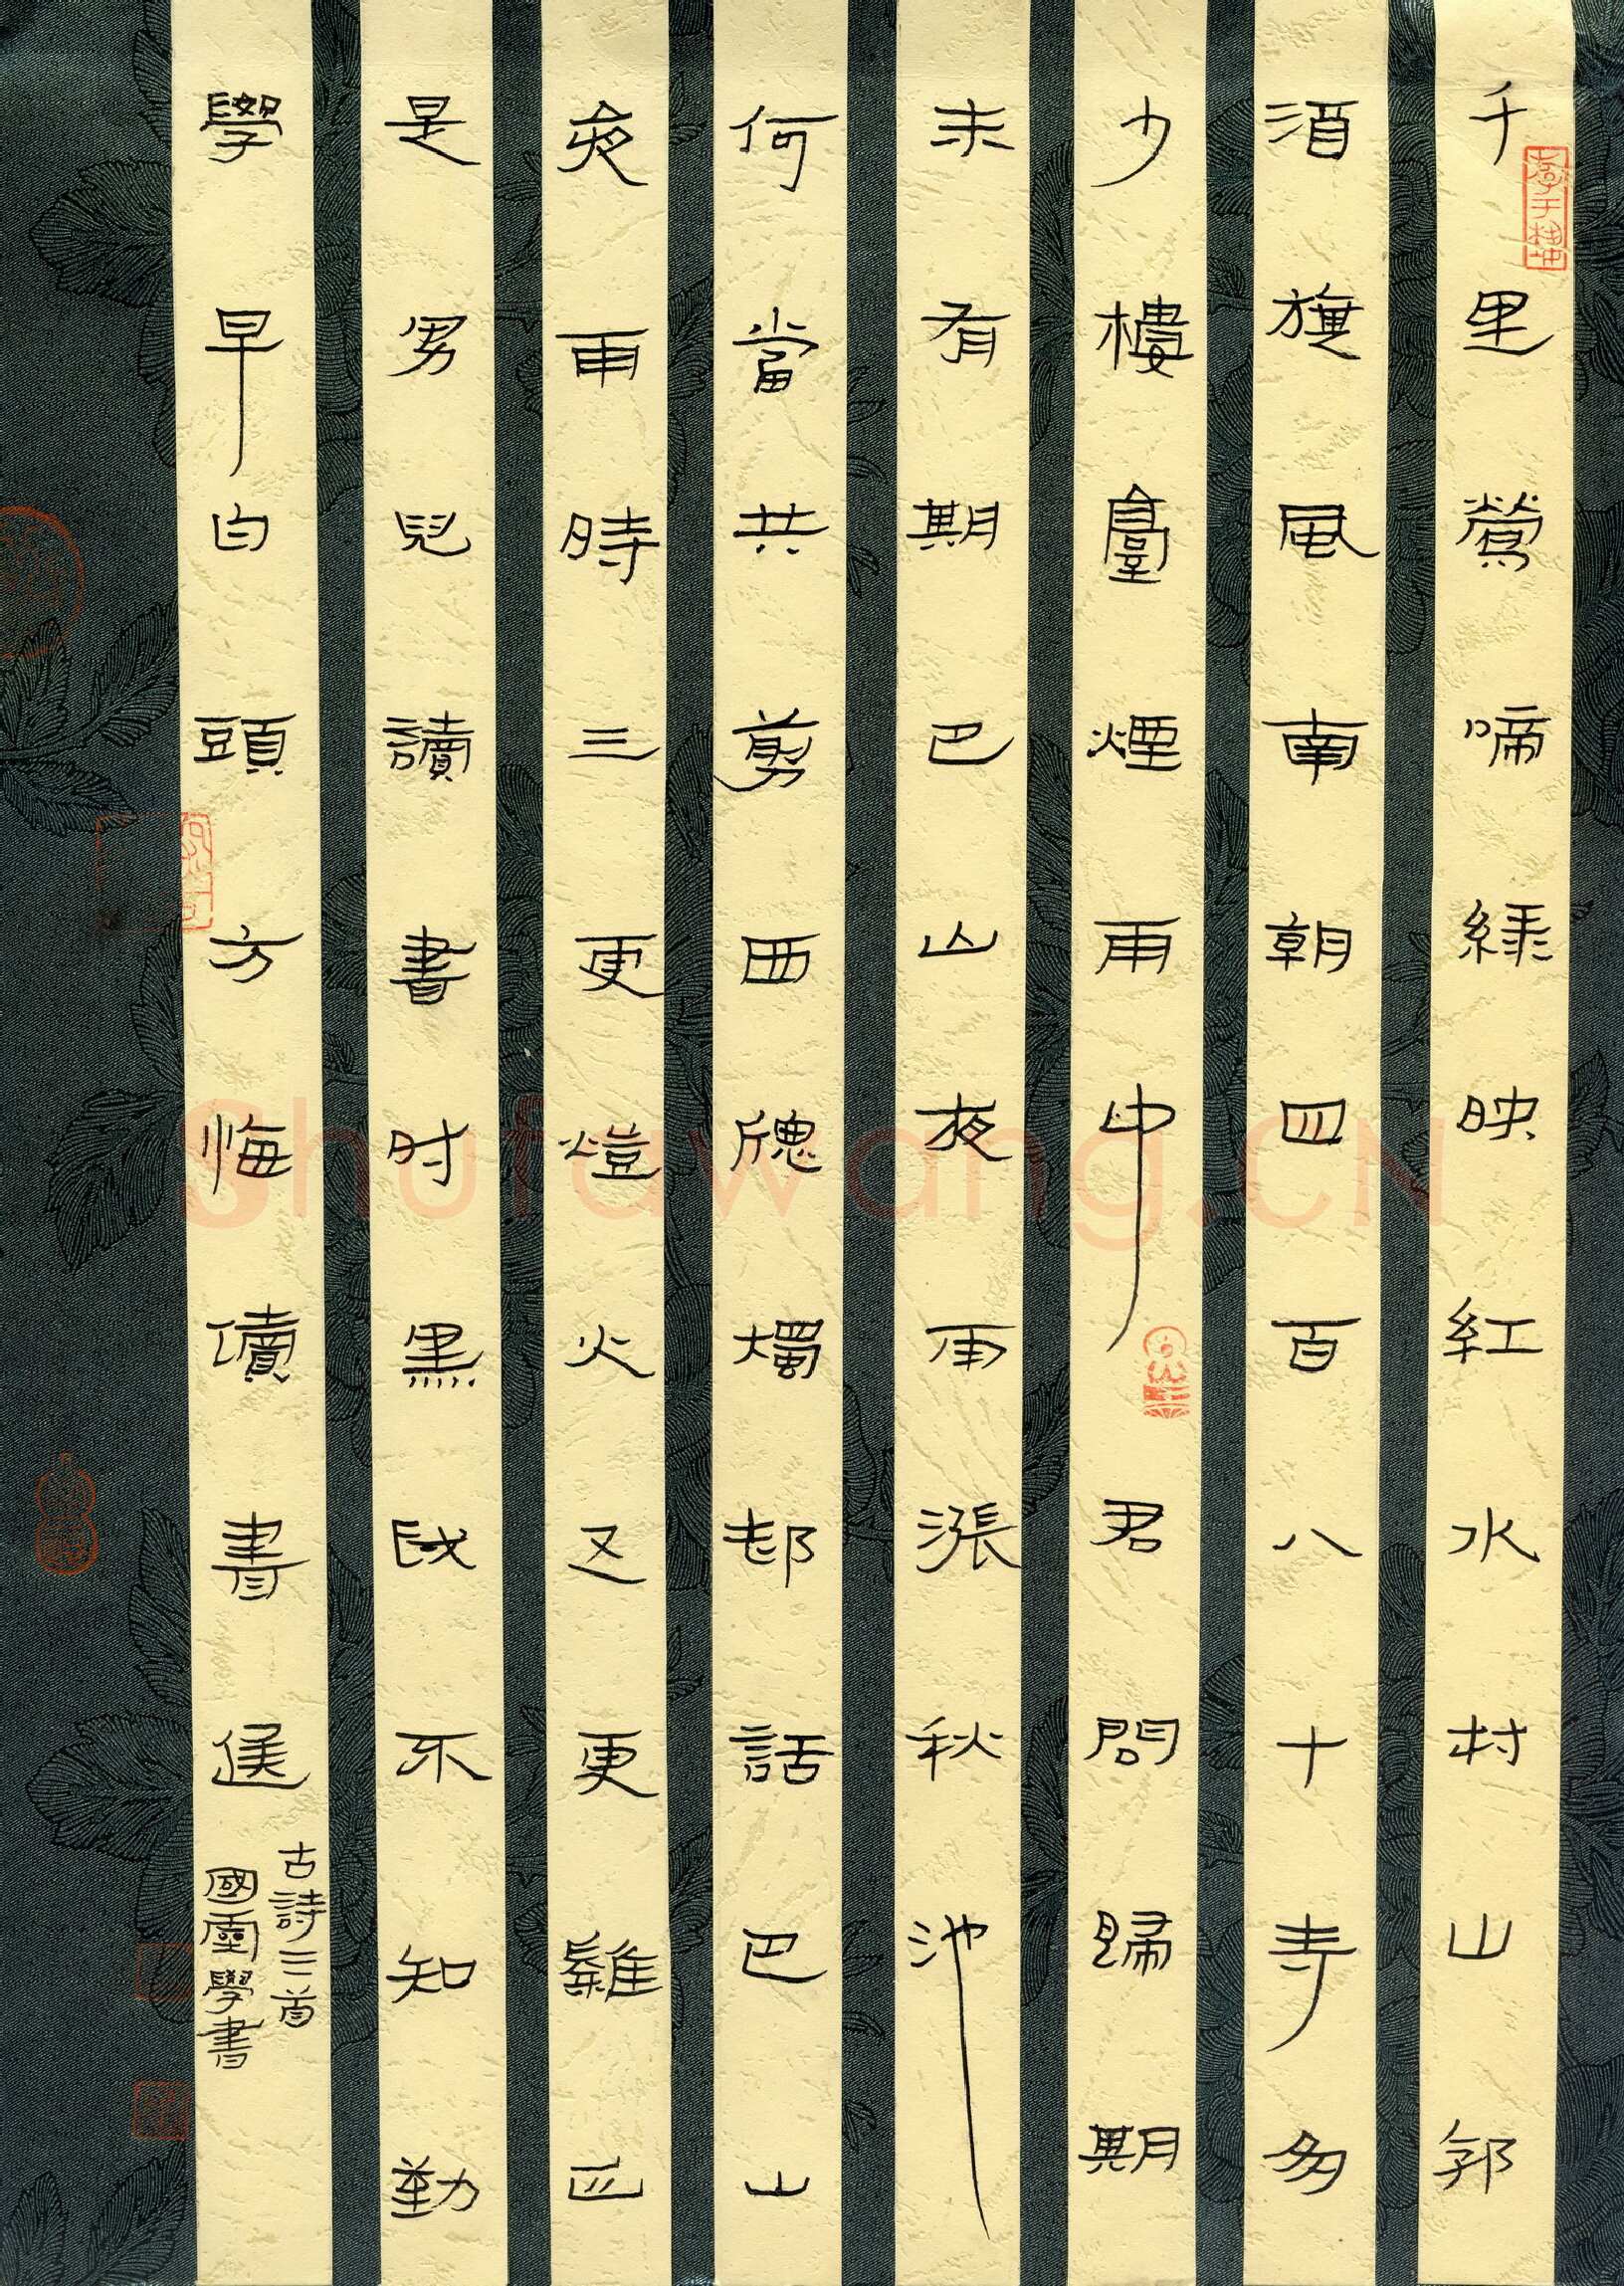 千里鶯啼綠映紅水村山郭
酒旗風南朝四百八十寺多
少樓臺煙雨中君問歸期
未有期巴山夜雨漲秋池
何當共剪西牕燭卻話巴山
夜雨時三更燈火五更雞正
是男兒讀書时黑髮不知勤
學早白頭方悔讀書遲
古詩三首
國學書
Shufawang.CN